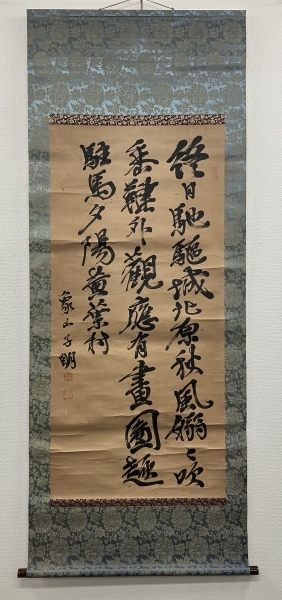 終日馳驅城北原秋風嫋々吹
垂鞬外觀應有畫圖趣
駐馬夕陽黄葉村
象山子明